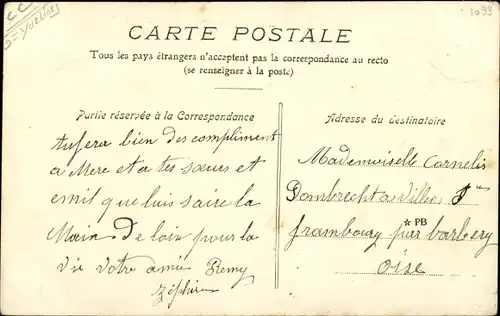 CC
D= Yvelines
1099
CARTE POSTALE
Tous les pays étrangers n'acceptent pas la correspondance au recto
(se renseigner à la poste)
Partie réservée à la Correspondance
Adresse du Destinataire
tu fera bien des compliment
a Mere et a tes sœurs et
emil que luis saire la
Main De loin pour la
vie Votre amie Remy
Zéphir
Mademoiselle Cornelis
Dombrecht a Villers
framboury pur barbery
☆PB
Oise